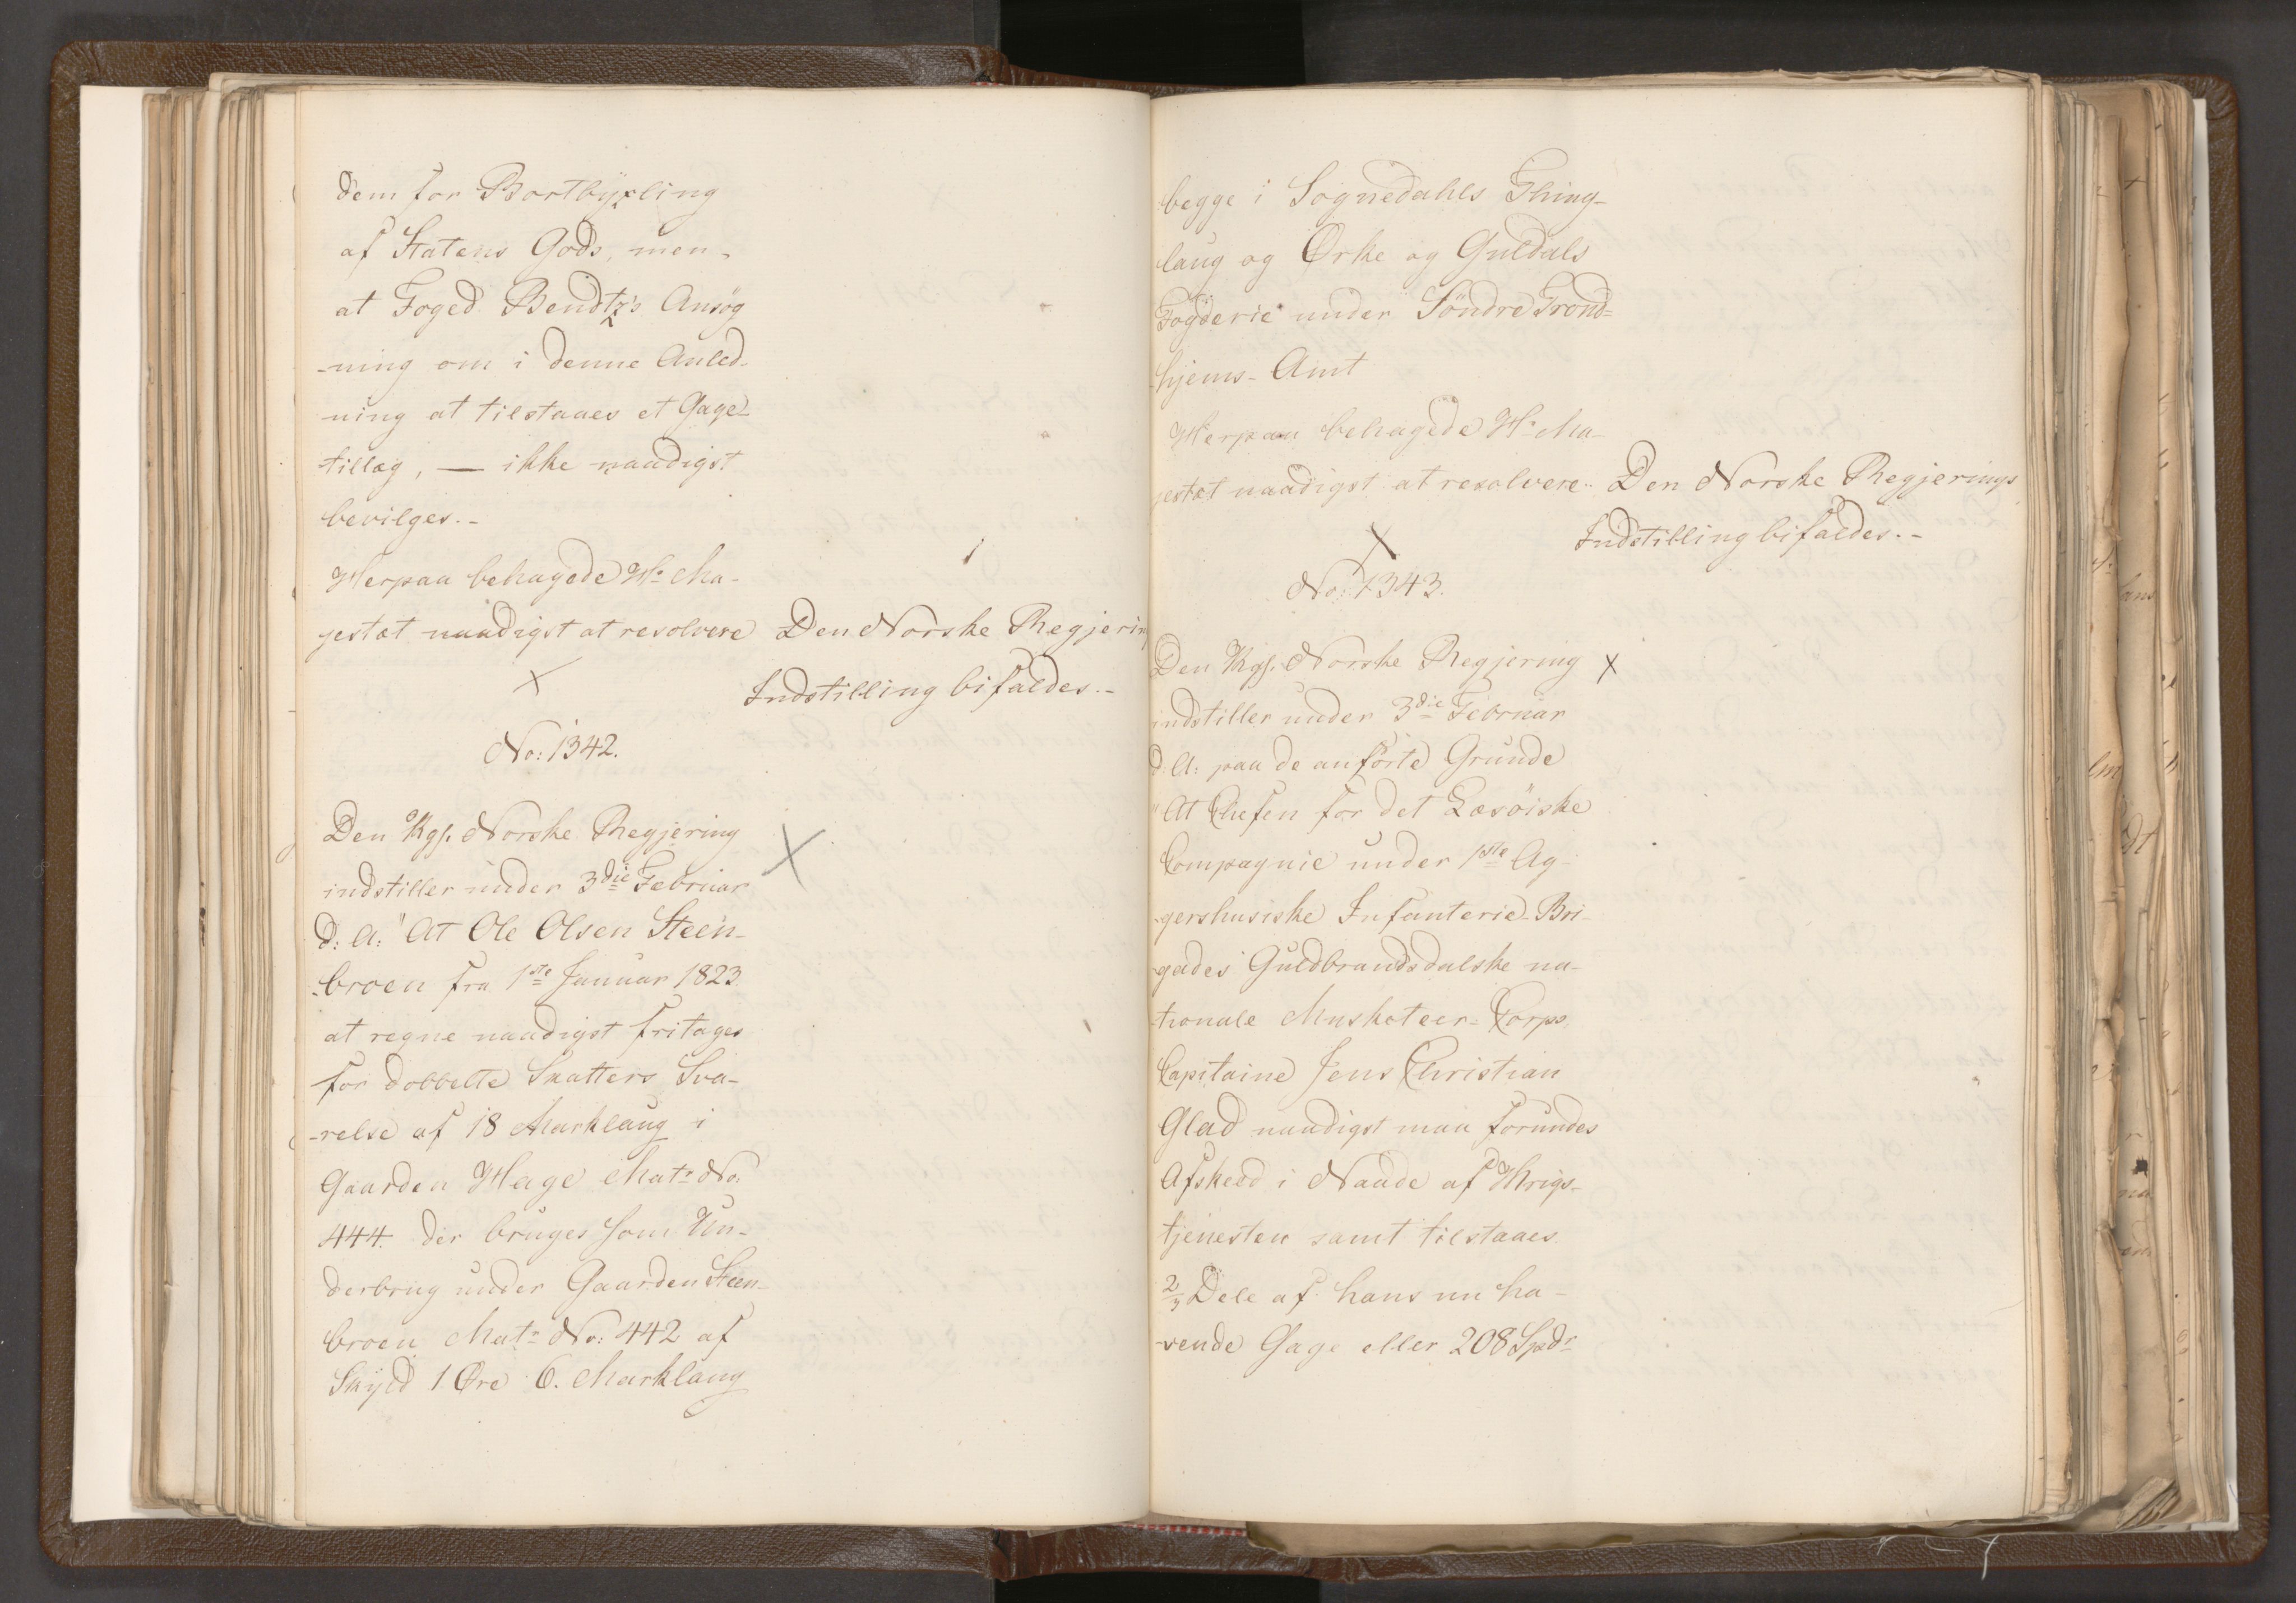 dem for Bortbyxling
af Statens Gods, men
at Foged Bendtz's Ansøg
-ning om i denne Anled-
ning at tilstaaes et Gage-
tillæg, — ikke naadigst
bevilges.-
Herpaa behagede Hs Ma-
jestæt naadigst at resolvere Den Norske Regjering
Indstilling bifaldes.-
No: 1342.
Den Kgl. Norske Regjering
indstiller under 3die Februar
d: A: "At Ole Olsen Steen-
broen fra 1ste Januar 1823
at regne naadigst fritages
for dobbelte Skatters Sva-
-relse af 18 Marklaug i
Gaarden Hage Matr No:
444. der bruges som Un-
derbrug under Gaarden Steen-
broen Matr No: 442 af
Skyld 1 Øre 6. Marklaug
begge i Sognedahls Thing-
laug og Ørke og Guldals
Fogderie under Søndre Trond=
hjems- Amt
Herpaa behagede Hs Ma-
jestæt naadigst at resolvere.. Den Norske Regjerings
Indstilling bifaldes.-
No: 1343.
Den Kgl. Norske Regjering
indstiller under 3die Februar
d: A: paa de anførte Grunde
"At Chefen for det Læsöiske
Compagnie under 1ste Ag-
-gershusiske Infanterie-Bri-
gades Guldbrandsdalske na-
tionale Musketeer-Corps
Capitaine Jens Christian
Glad naadigst maa forundes
Afskeed i Naade af Krigs-
tjenesten samt tilstaaes
2/3 Dele af hans nu ha-
-vende Gage eller 208 Spdr